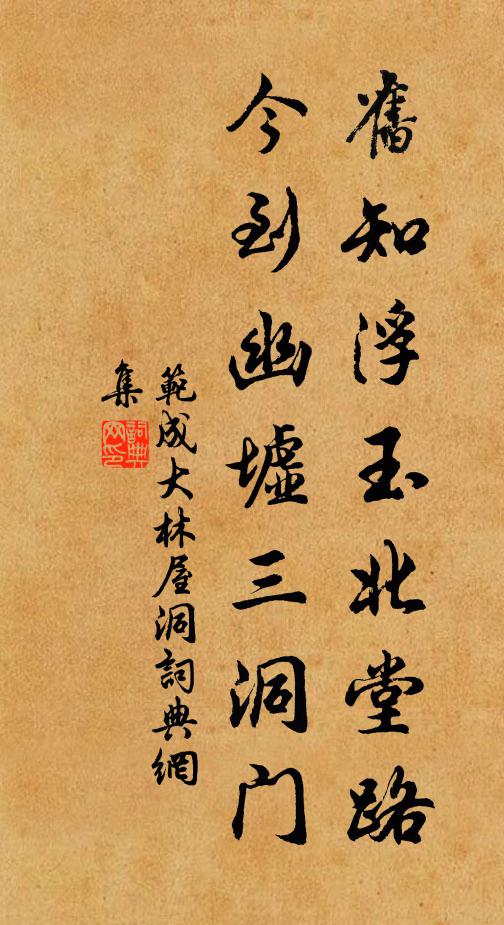 舊知浮玉北堂路
今到幽墟三洞门
範成大林屋洞詞典網
集
詞典
网印